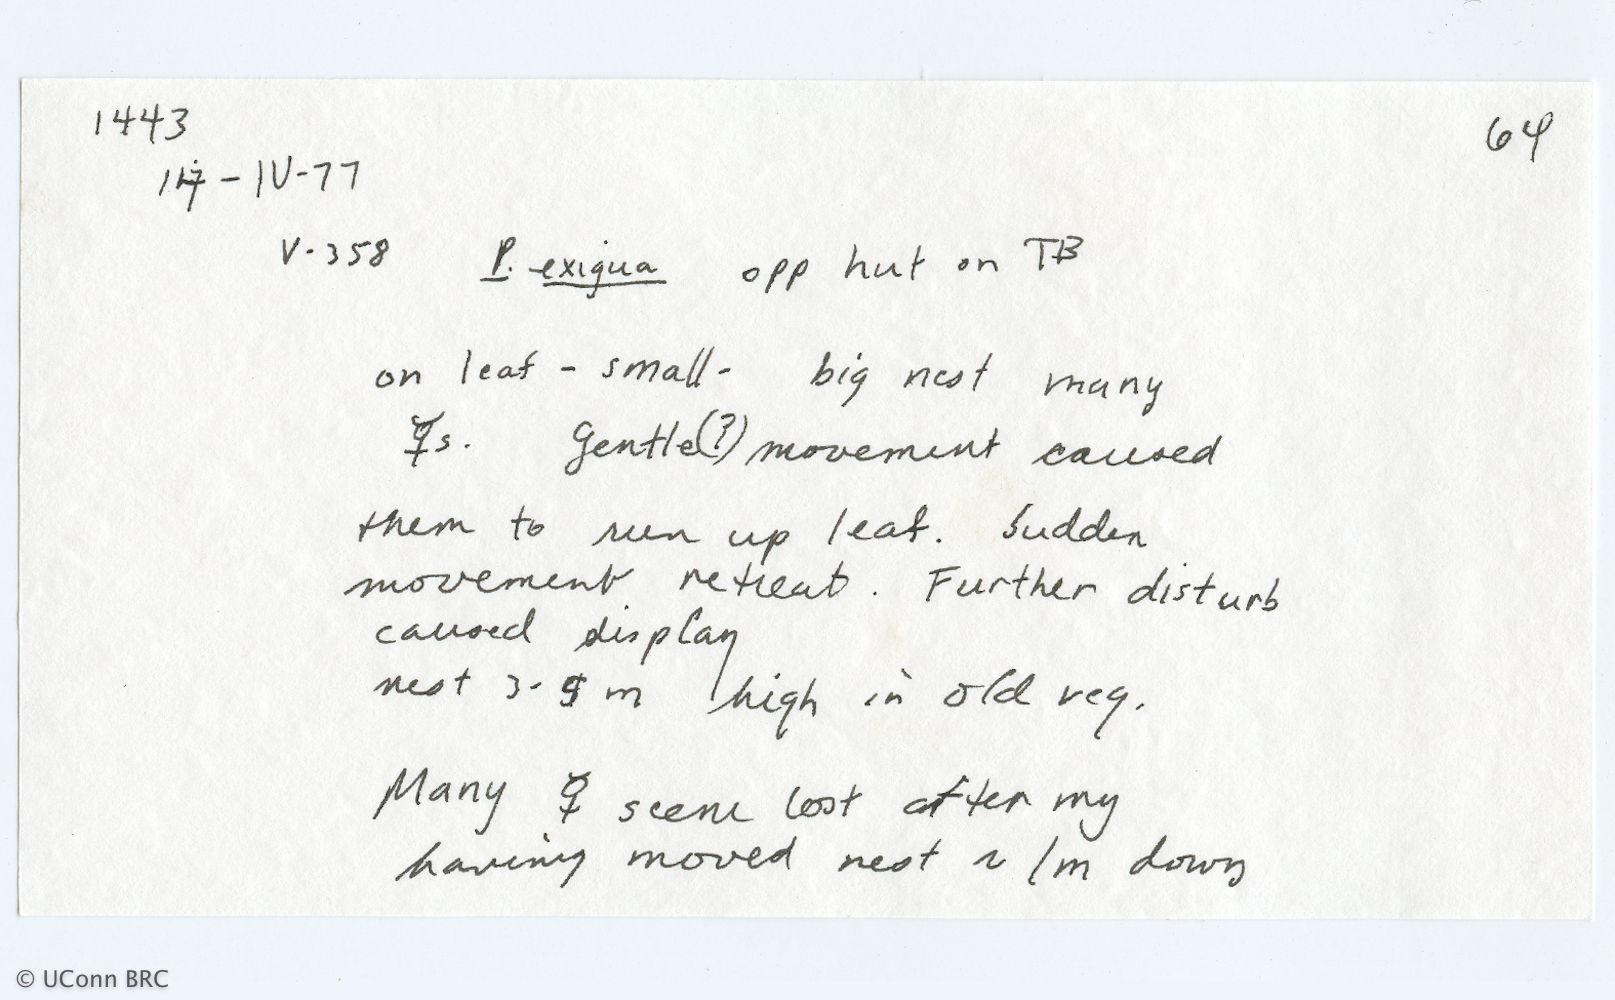 1443
64
-IV-77
V-358 P. exigua opp hut on TB
on leaf - small - big nest many
☿s. Gentle(?) movement caused
them to run up leaf. Sudden
movement retreat. Further disturb
caused display
nest 3- m high in old veg.
Many ☿ seem lost after my
having moved nest ~ 1m down
© UConn BRC